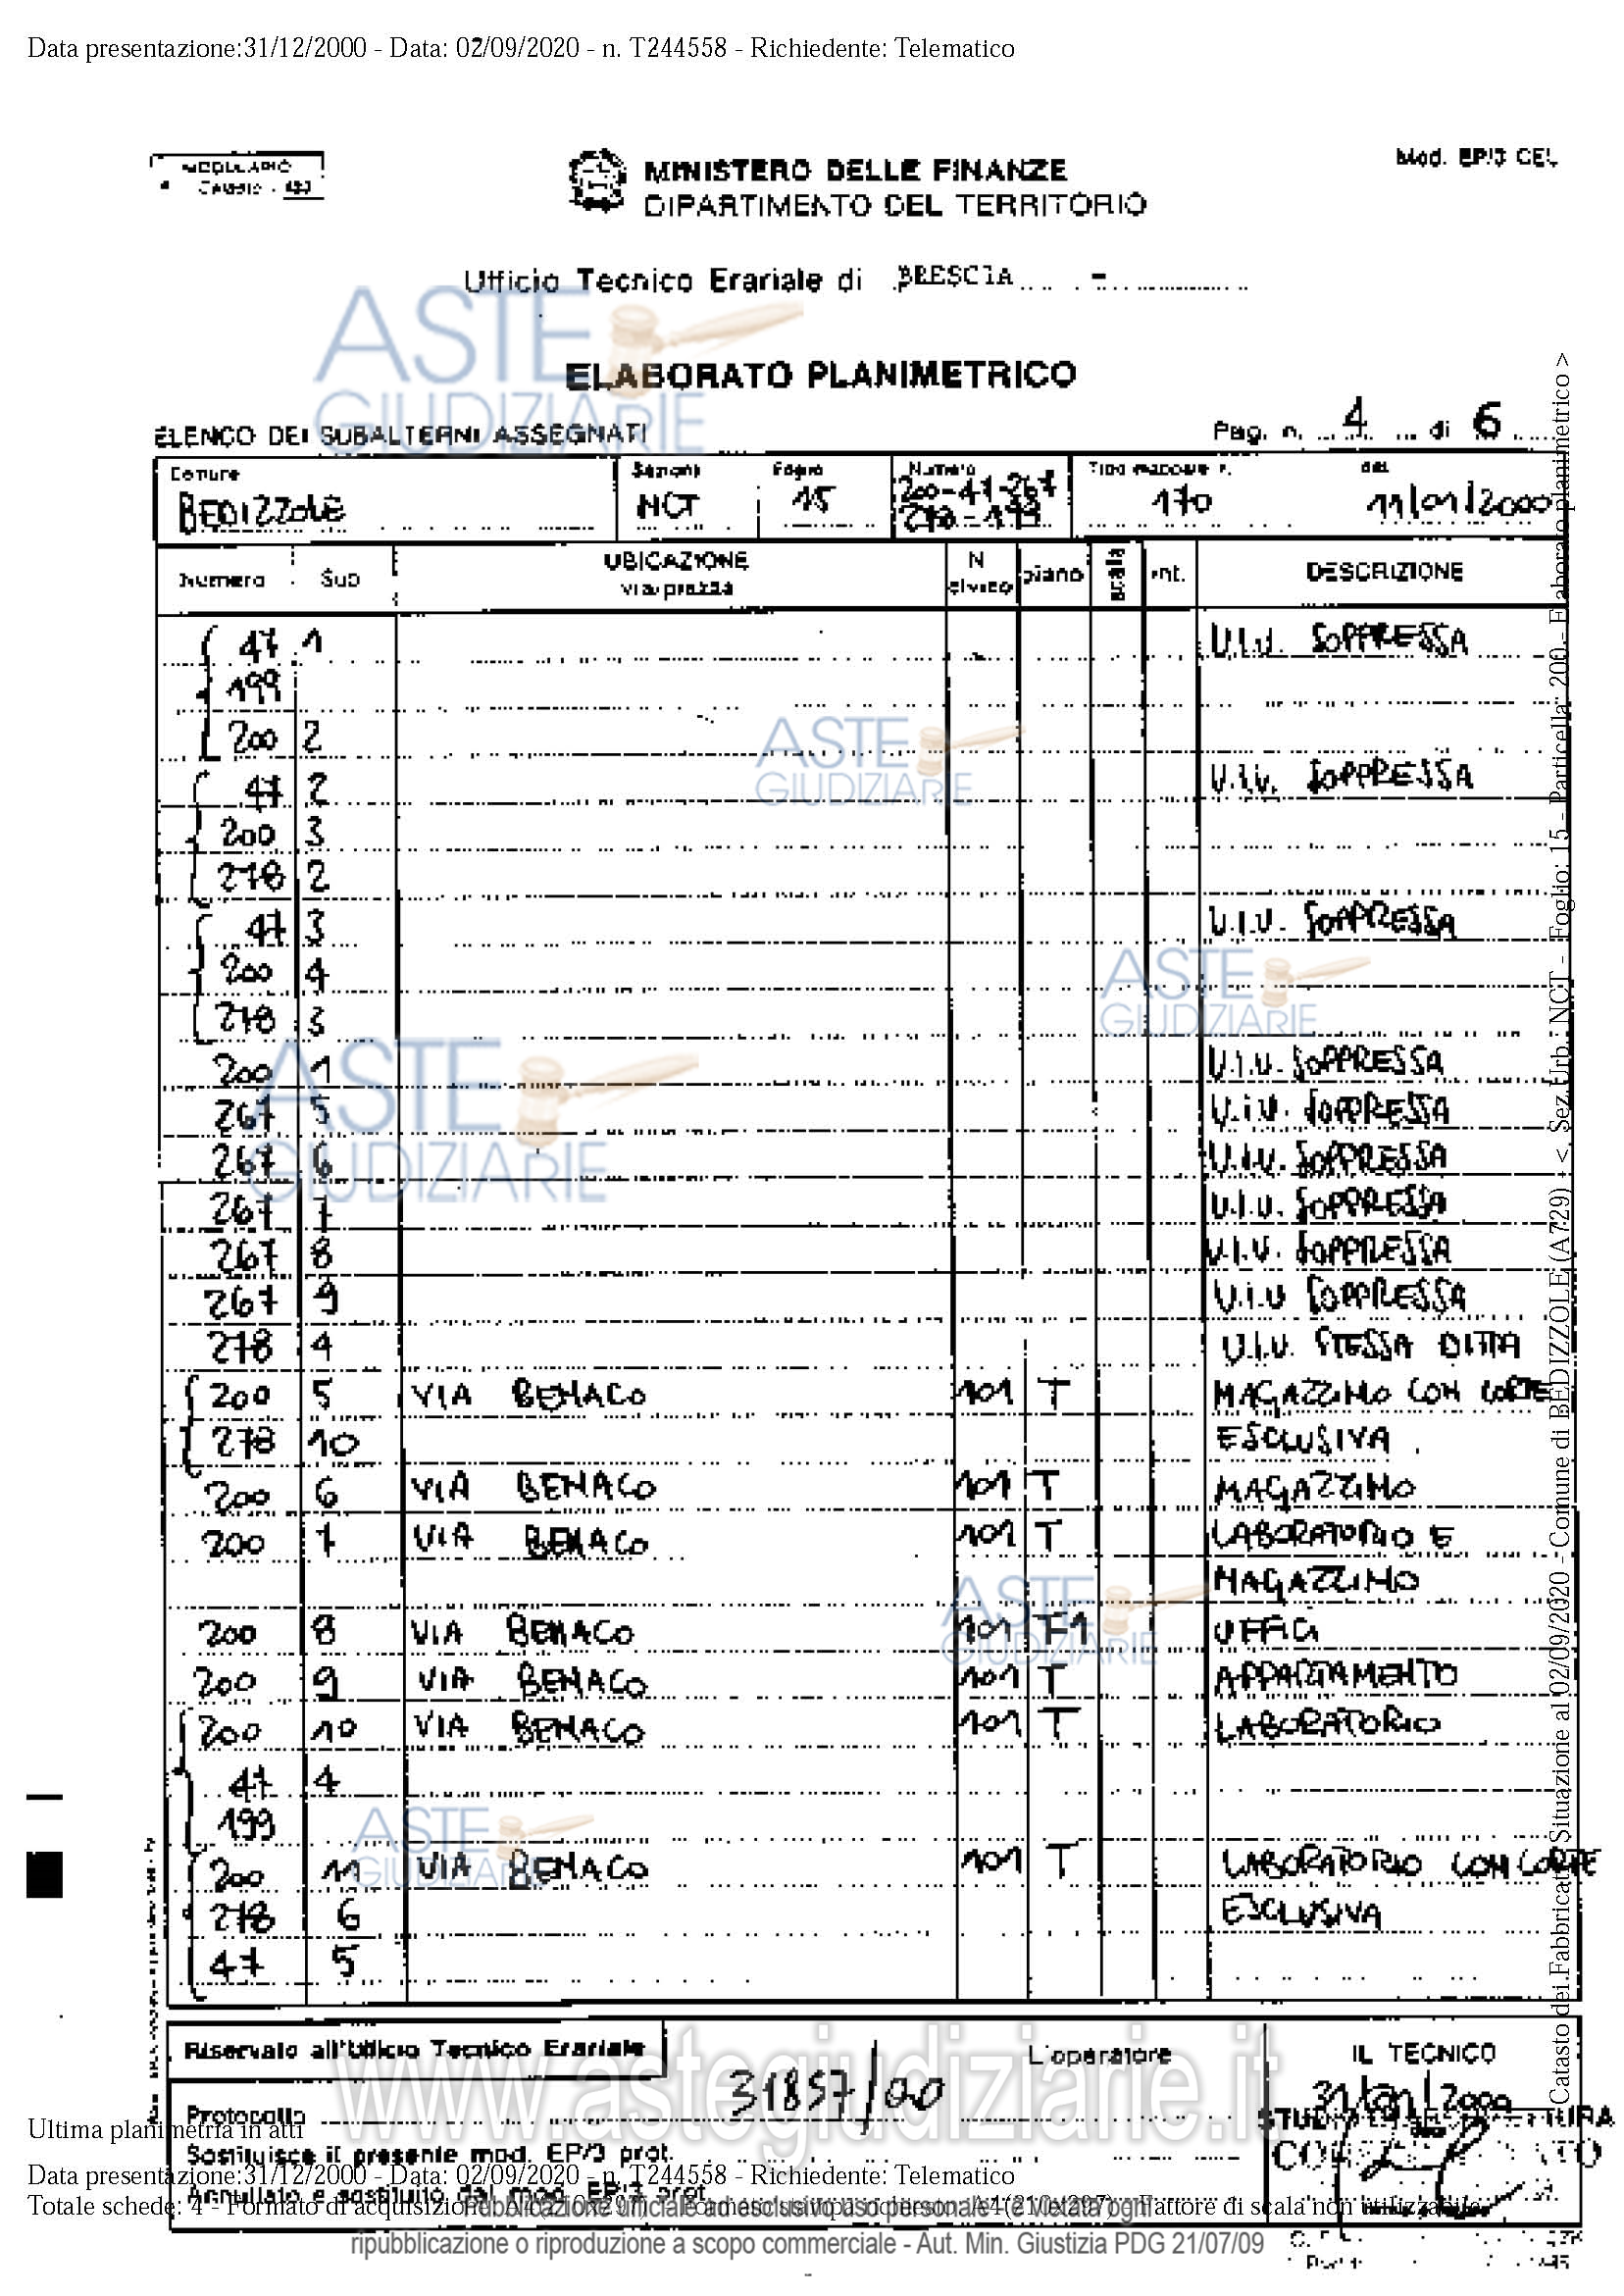 Data presentazione:31/12/2000 - Data: 02/09/2020 - n. T244558 - Richiedente: Telematico
MODULARIO
Mod. EP/3 CEU
MINISTERO DELLE FINANZE
DIPARTIMENTO DEL TERRITORIO
Ufficio Tecnico Erariale di BRESCIA -
ELABORATO PLANIMETRICO
ELENCO DEI SUBALTERNI ASSEGNATI Pag. n. 4 di 6
Comune Sezione Foglio Numero Tipo mappale n. del
BEDIZZOLE NCT 15 200-47-267 170 11/01/2000
278-199
Numero Sub UBICAZIONE via/piazza N civico piano scala int. DESCRIZIONE
47 1 U.I.U. SOPPRESSA
199
200 2
47 2 U.I.U. SOPPRESSA
200 3
278 2
47 3 U.I.U. SOPPRESSA
200 4
278 3
200 1 U.I.U. SOPPRESSA
267 5 U.I.U. SOPPRESSA
267 6 U.I.U. SOPPRESSA
267 7 U.I.U. SOPPRESSA
267 8 U.I.U. SOPPRESSA
267 9 U.I.U SOPPRESSA
278 4 U.I.U. STESSA DITTA
200 5 VIA BENACO 101 T MAGAZZINO CON CORTE
278 10 ESCLUSIVA.
200 6 VIA BENACO 101 T MAGAZZINO
200 7 VIA BENACO 101 T LABORATORIO E
MAGAZZINO
200 8 VIA BENACO 101 UFFICI
200 9 VIA BENACO 101 T APPARTAMENTO
200 10 VIA BENACO 101 T LABORATORIO
47 4
199
200 11 VIA BENACO 101 T LABORATORIO CON CORTE
278 6 ESCLUSIVA
47 5
Riservato all'Ufficio Tecnico Erariale L'operatore IL TECNICO
Protocollo 31857/00
Sostituisce il presente mod. EP/3 prot.
Annullato e sostituito dal mod. EP/3 prot.
Ultima planimetria in atti
Data presentazione:31/12/2000 - Data: 02/09/2020 - n. T244558 - Richiedente: Telematico
Totale schede: 4 - Formato di acquisizione: A4(210x297) - Formato stampa richiesto: A4(210x297) - Fattore di scala non utilizzabile
Catasto dei Fabbricati - Situazione al 02/09/2020 - Comune di BEDIZZOLE (A729) - < Sez.Urb.: NCT - Foglio: 15 - Particella: 200 - Elaborato planimetrico >
ASTE GIUDIZIARIE
ASTE GIUDIZIARIE
ASTE GIUDIZIARIE
ASTE GIUDIZIARIE
ASTE GIUDIZIARIE
ASTE GIUDIZIARIE
www.astegiudiziarie.it
Pubblicazione ufficiale ad esclusivo uso personale - è vietata ogni
ripubblicazione o riproduzione a scopo commerciale - Aut. Min. Giustizia PDG 21/07/09